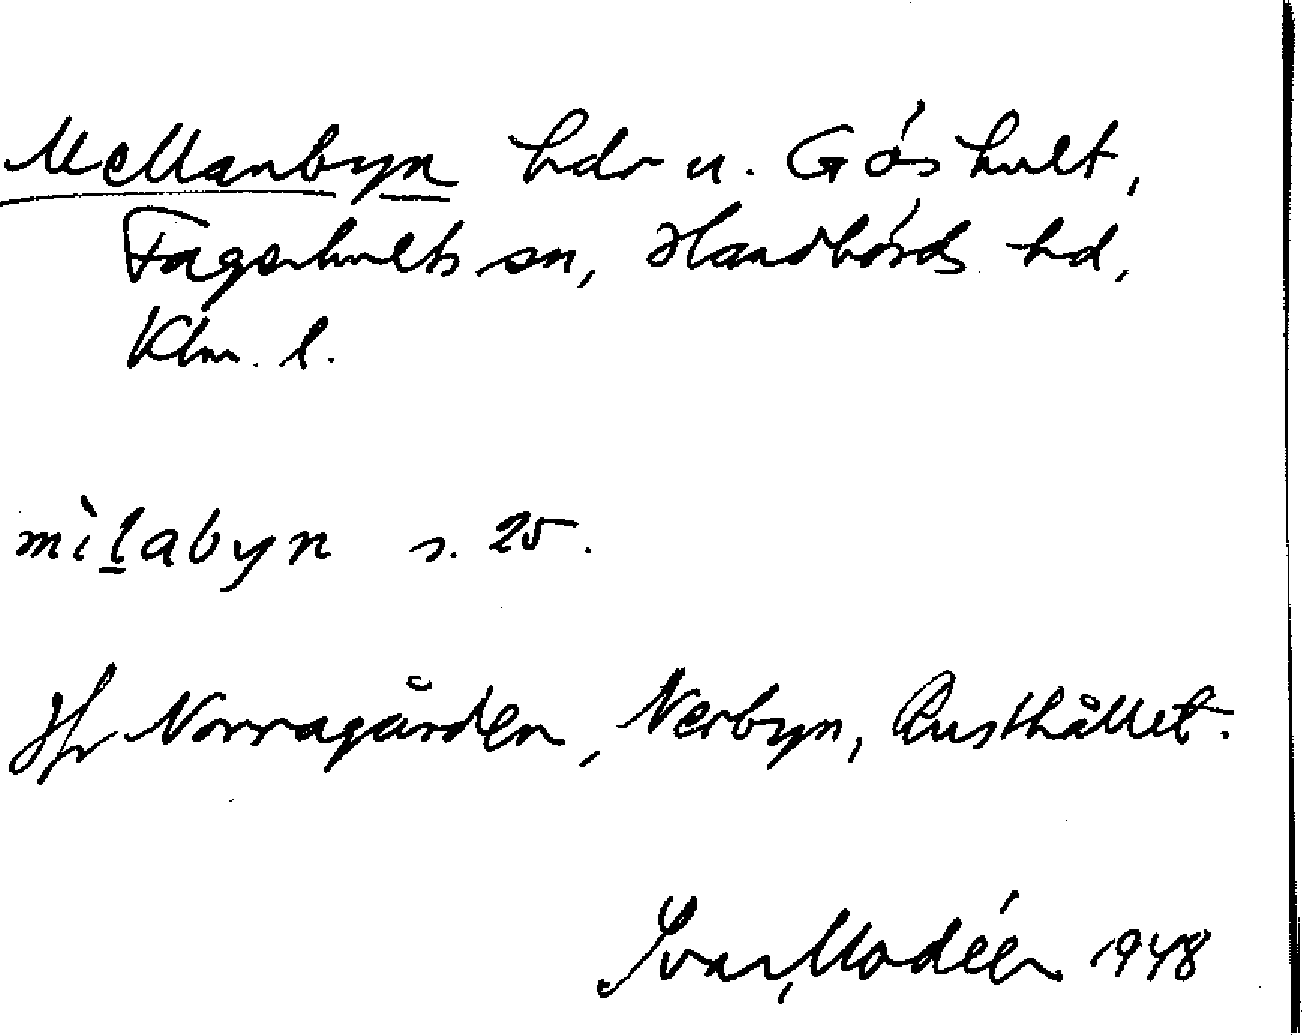 Mellanbyn hdr u. Göshult,
Fagerhults sn, Handbörds hd,
Klm. l.
mìḻabyn s. 25.
Jfr Norragården, Nerbyn, Rusthållet.
Ivar Modéer 1948